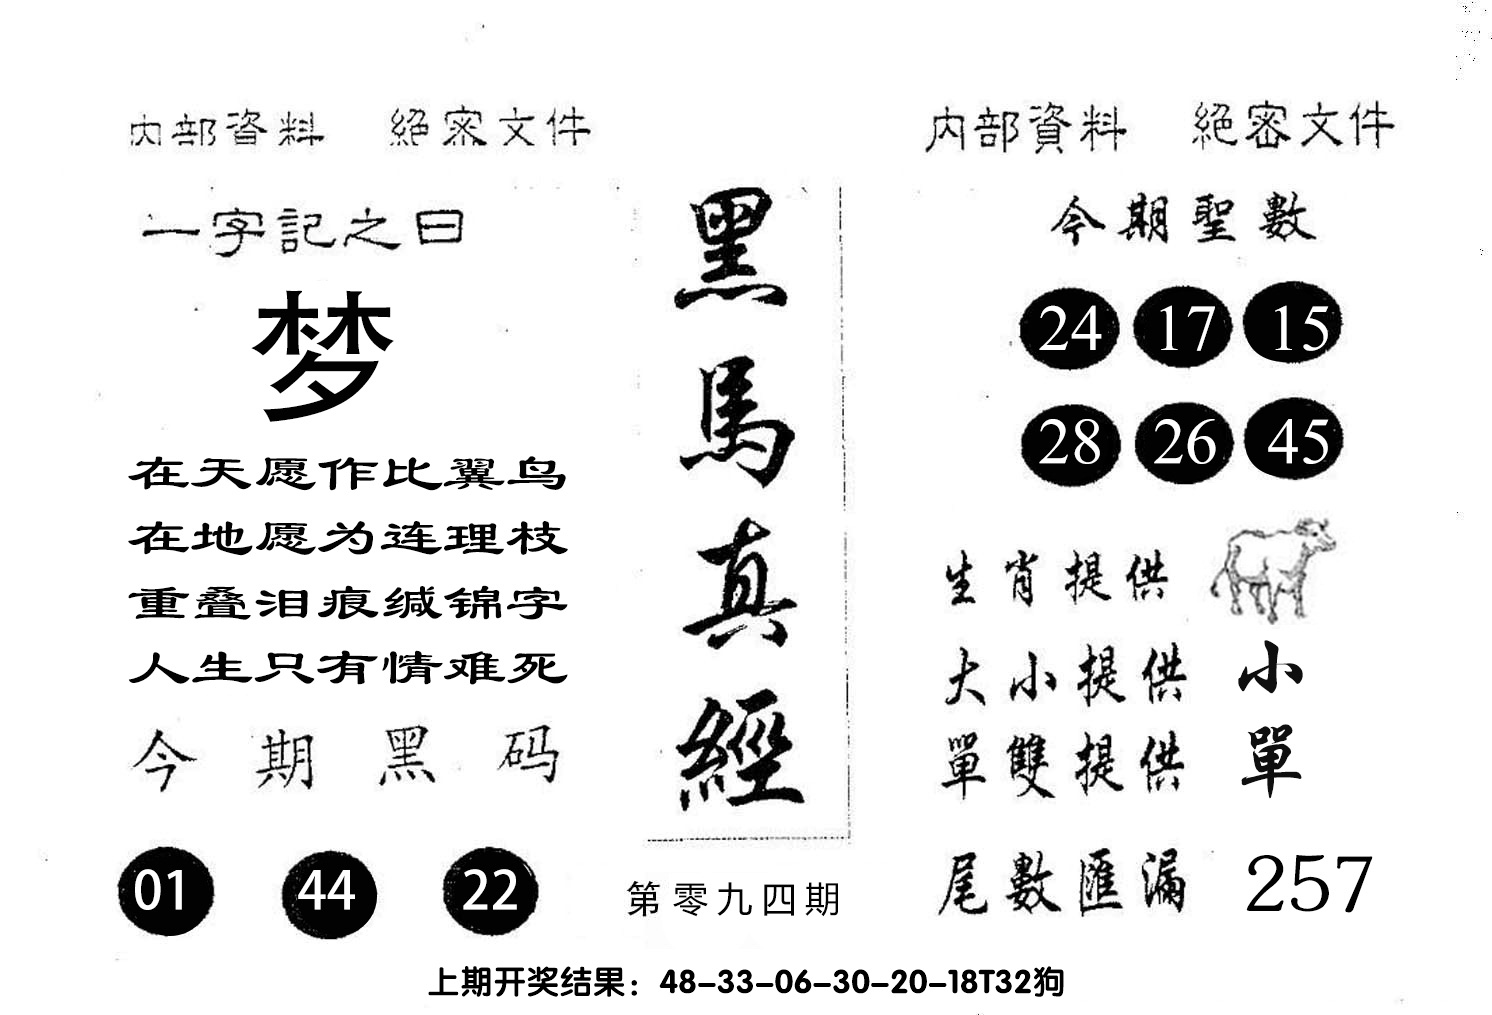 内部資料 絕密文件
一字記之曰
梦
在天愿作比翼鸟
在地愿为连理枝
重叠泪痕缄锦字
人生只有情难死
今期黑码
01 44 22
黑馬真經
第零九四期
内部資料 絕密文件
今期聖數
24 17 15
28 26 45
生肖提供
大小提供 小
單雙提供 單
尾數匯漏 257
上期开奖结果：48-33-06-30-20-18T32狗